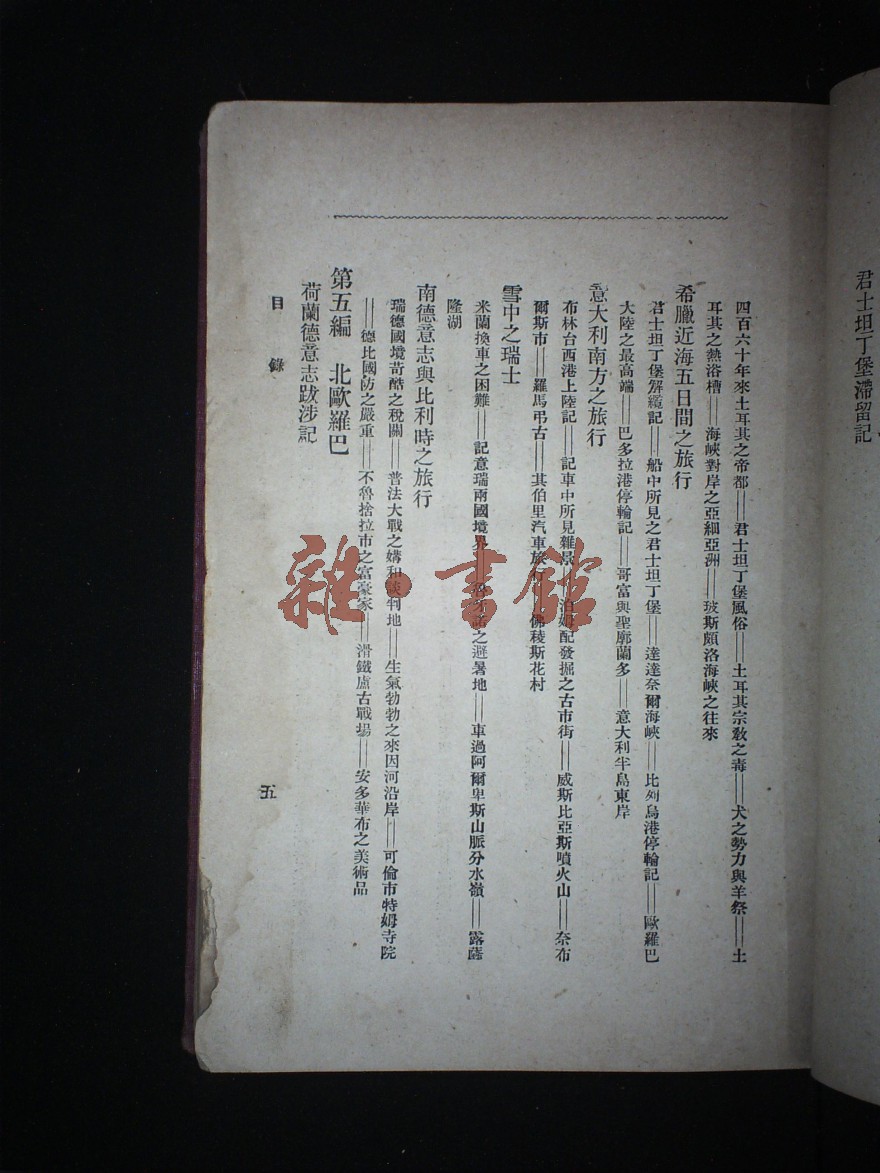 君士坦丁堡滯留記
四百六十年來土耳其之帝都——君士坦丁堡風俗——土耳其宗敎之毒——犬之勢力與羊祭——土
耳其之熱浴槽——海峽對岸之亞細亞洲——玻斯頗洛海峽之往來
希臘近海五日間之旅行
君士坦丁堡解纜記——船中所見之君士坦丁堡——達達奈爾海峽——比列鳥港停輪記——歐羅巴
大陸之最高端——巴多拉港停輪記——哥富與聖廓蘭多——意大利半島東岸
意大利南方之旅行
布林台西港上陸記——記車中所見雜景——泊姆配發掘之古市街——威斯比亞斯噴火山——奈布
爾斯市——羅馬弔古——其伯里汽車旅行——佛稜斯花村
雪中之瑞士
米蘭換車之困難——記意瑞兩國境界——諾之避暑地——車過阿爾卑斯山脈分水嶺——露薩
隆湖
南德意志與比利時之旅行
瑞德國境苛酷之稅關——普法大戰之媾和談判地——生氣勃勃之來因河沿岸——可倫市特姆寺院
——德比國防之嚴重——不魯捨拉市之富豪家——滑鐵盧古戰場——安多華布之美術品
第五編 北歐羅巴
荷蘭德意志跋涉記
目錄
五
雜·書館